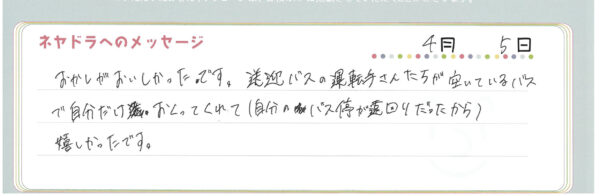 ネヤドラへのメッセージ
4月 5日
おかしがおいしかったです。送迎バスの運転手さんたちが空いているバス
で自分だけおくってくれて(自分のバス停が遠回りだったから)
嬉しかったです。